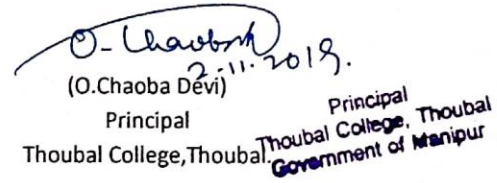 O. Chaoba
2.11.2019.
(O.Chaoba Devi)
Principal
Thoubal College,Thoubal.
Principal
Thoubal College, Thoubal
Government of Manipur